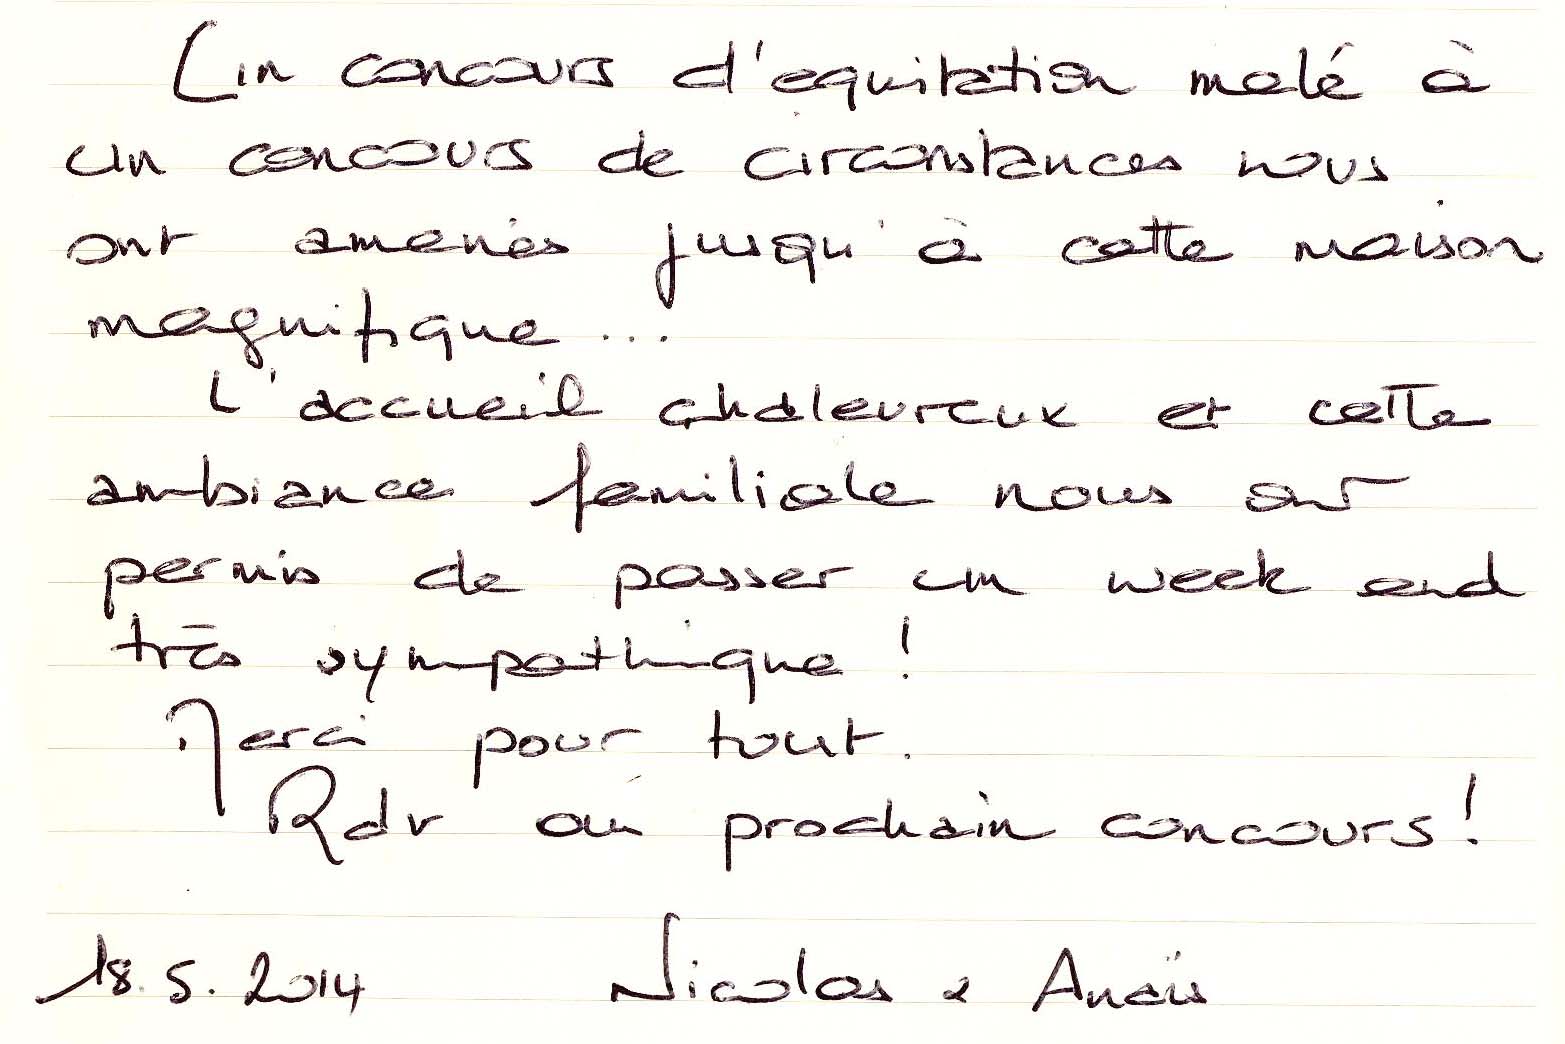 Un concours d'equitation melé à
un concours de circonstances nous
ont amenés jusqu'à cette maison
magnifique...
L'accueil chaleureux et cette
ambiance familiale nous ont
permis de passer un week end
très sympathique !
Merci pour tout.
Rdv au prochain concours !
18.5.2014 Nicolas & Anaïs